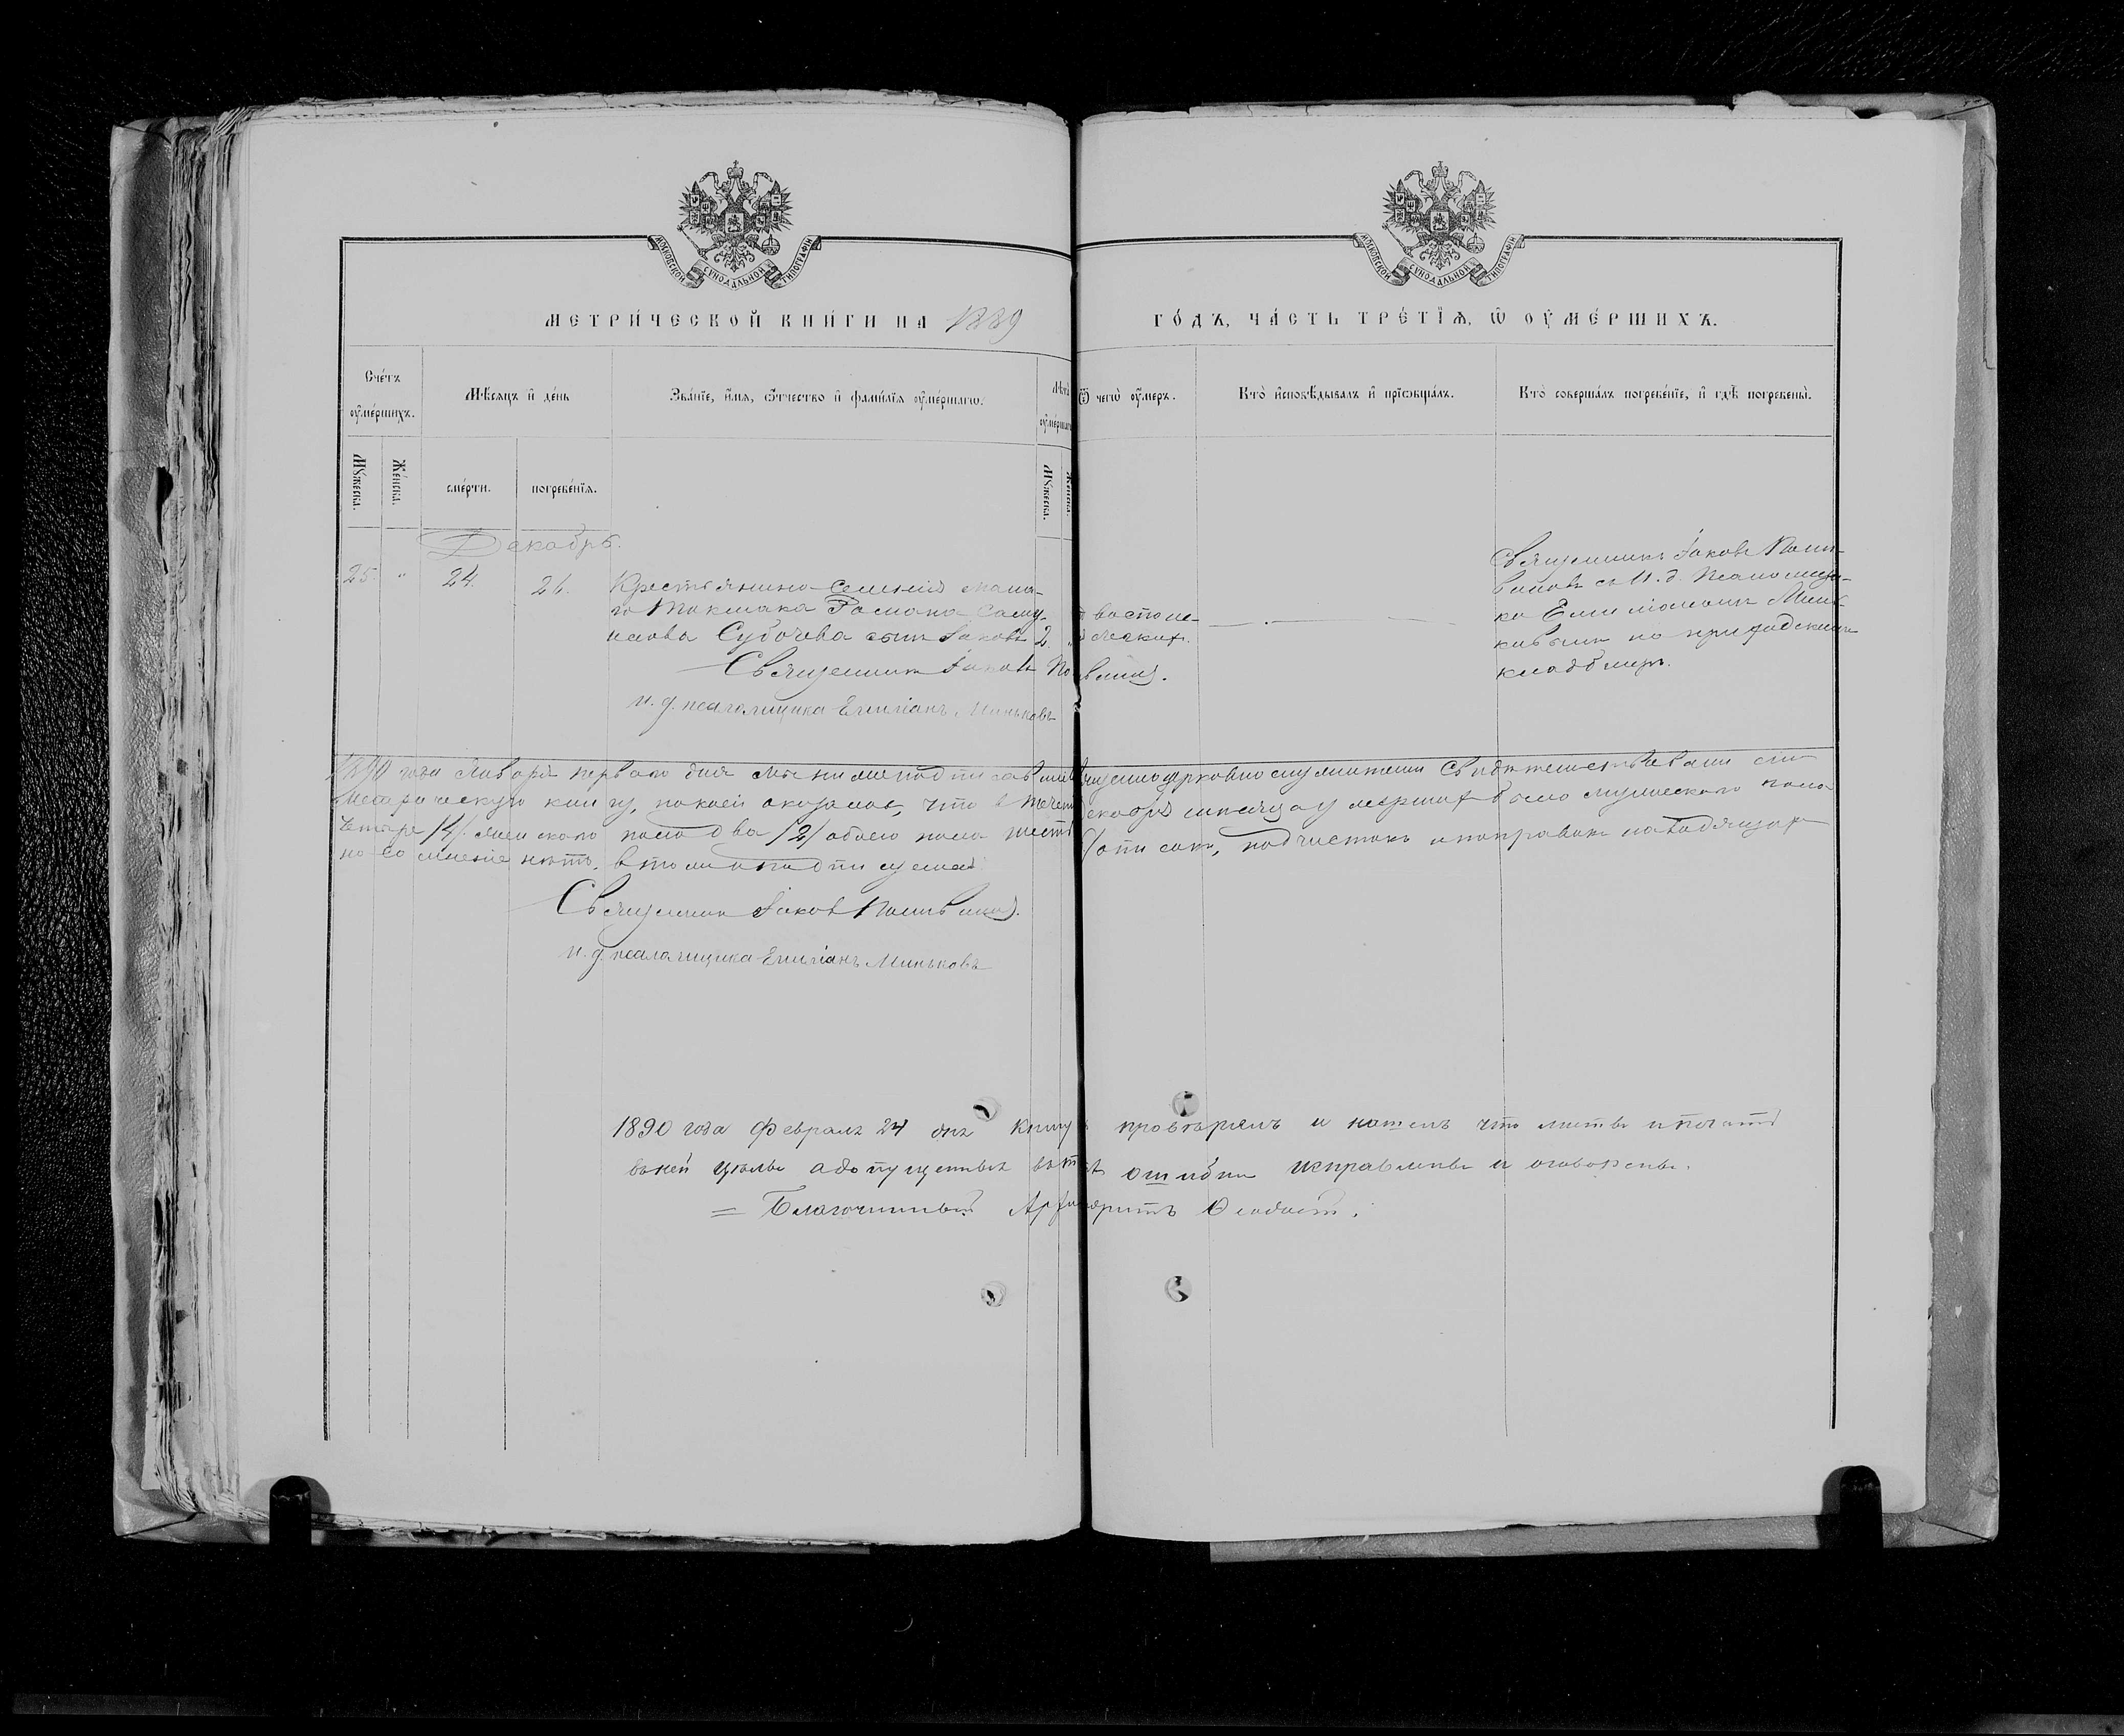 МОСКОВСКОЙ СѴНОДАЛЬНОЙ ТИПОГРАФІИ
МОСКОВСКОЙ СѴНОДАЛЬНОЙ ТИПОГРАФІИ
МЕТРИ́ЧЕСКОЙ КНИ́ГИ НА 1889
ГО́ДЪ, ЧА́СТЬ ТРЕ́ТЇѦ, Ѡ ОУ҆МЕ́РШИХЪ.
Сче́тъ оу҆ме́ршихъ.
Мѣ́сяцъ и҆ де́нь
Зва́нїе, и҆́мѧ, ѻ҆́тчество и҆ фами́лїѧ оу҆ме́ршагѡ.
Лѣ́та оу҆ме́ршагѡ
Ѿ чегѡ̀ оу҆́меръ.
Кто̀ и҆сповѣ́дывалъ и҆ прїѡбща́лъ.
Кто̀ соверша́лъ погребе́нїе, и҆ гдѣ̀ погребены̀.
Мꙋ́жеска.
Же́нска.
сме́рти.
погребе́нїѧ.
Мꙋ́жеска.
Же́нска.
Декабрь.
25. " 24. 26.
Крестьянина селенія Мало-
го Токмака Романа Саму-
илова Субочева сынъ Іаковъ 2 "
Священникъ Іаковъ
и. д. псаломщика Емиліанъ Миньковъ
Священникъ Іаковъ
съ И. д. Псаломщи-
ка Емиліаномъ Минь-
ковымъ на приходскомъ
кладбищѣ.
1890 года Января перваго дня мы нижеподписавшіе церковнослужители свидѣтельствовали сію
метрическую книгу, по коей оказалось, что в теченіи Декабря мѣсяца умершихъ было мужеского пола
четыре /4/ женского пола два /2/ обоего пола шесть описокъ, подчистокъ и поправокъ наводящихъ
но сомненіе нѣтъ. в томъ и подписуемся
Священникъ Іаковъ
и. д. псаломщика Емиліанъ Миньковъ
1890 года Февраля 24 дня книгу провѣрялъ и нашелъ что листы и печати
въ ней цѣлы а допущенныя ошибки исправлены и оговорены.
= Благочинный Архимандритъ